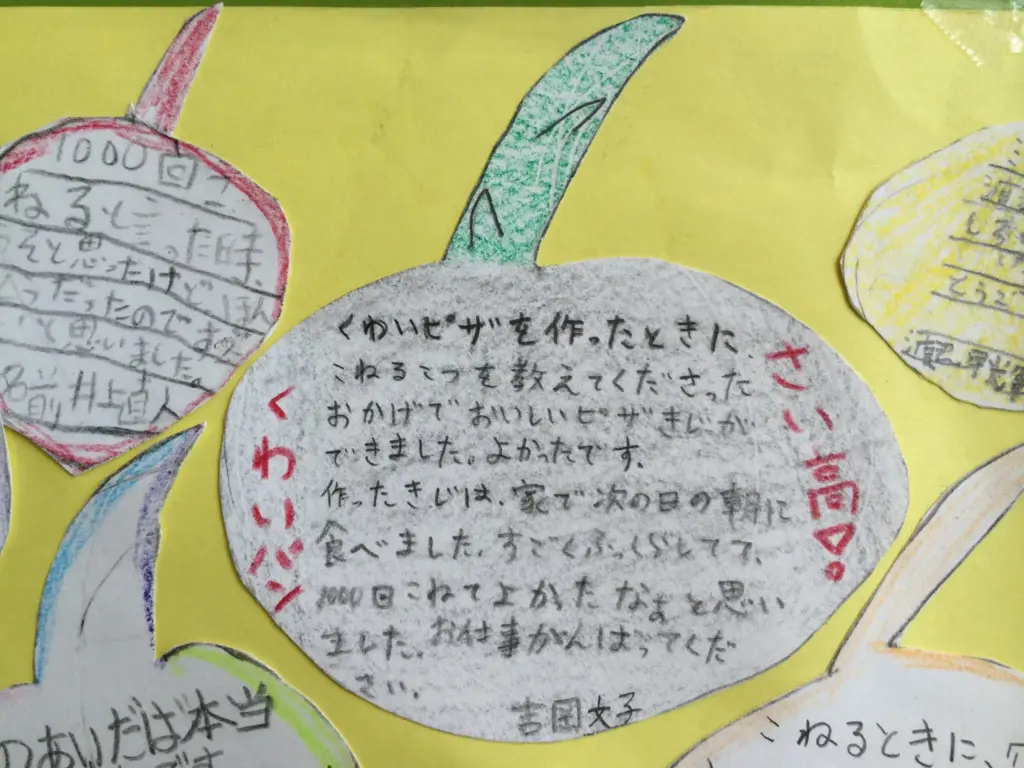 1000回こ
ねると言った時、
そと思ったけど ほん
だったのです
いと思いました。
名前 井上直人
くわいパン
くわいピザを作ったときに、
こねるこつを教えてくださった
おかげでおいしいピザきじが
できました。よかったです。
作ったきじは、家で次の日の朝に
食べました。すごくふっくらしてて、
1000回こねてよかったなぁと思い
ました。お仕事がんばってくだ
さい。
吉岡文子
さい高!
のあいだは本当
です
こねるときに、